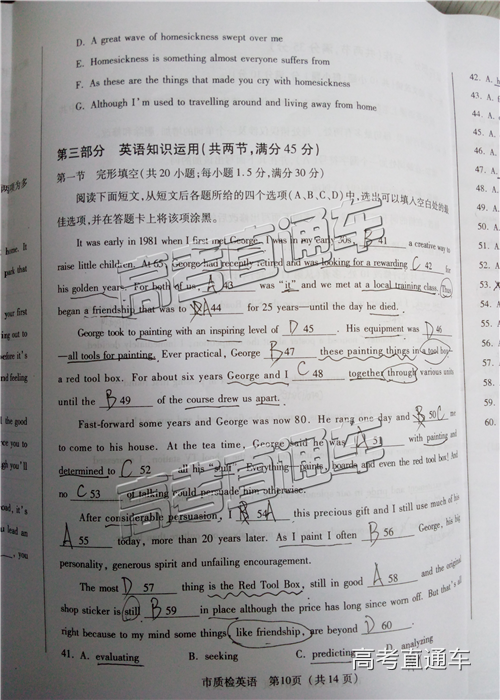 D. A great wave of homesickness swept over me
E. Homesickness is something almost everyone suffers from
F. As these are the things that made you cry with homesickness
G. Although I'm used to travelling around and living away from home
第三部分 英语知识运用(共两节,满分45分)
第一节 完形填空(共20小题;每小题1.5分,满分30分)
阅读下面短文,从短文后各题所给的四个选项(A、B、C、D)中,选出可以填入空白处的最
佳选项,并在答题卡上将该项涂黑。
It was early in 1981 when I first met George. I was in my early 30s, 41 a creative way to
raise little children. At 65 George had recently retired and was looking for a rewarding C 42 for
his golden years. For both of us, A 43 was "it" and we met at a local training class. Thus
began a friendship that was to A 44 for 25 years—until the day he died.
George took to painting with an inspiring level of D 45 . His equipment was D 46
—all tools for painting. Ever practical, George B 47 these painting things in a tool box
a red tool box. For about six years George and I C 48 together through various
until the B 49 of the course drew us apart.
Fast-forward some years and George was now 80. He rang one day and B 50 me
to come to his house. At the tea time, George said he was A 51 with painting and
determined to C 52 all his "stuff". Everything—paints, boards and even the red tool box! And
no C 53 of talking could persuade him otherwise.
After considerable persuasion, I B 54 this precious gift and I still use much of his
A 55 today, more than 20 years later. As I paint I often B 56 George, his big
personality, generous spirit and unfailing encouragement.
The most D 57 thing is the Red Tool Box, still in good A 58 and the original
shop sticker is still B 59 in place although the price has long since worn off. But that's all
right because to my mind some things, like friendship, are beyond D 60 .
41. A. evaluating B. seeking C. predicting D. analyzing
市质检英语 第10页(共14页)
高考直通车
高考直通车
高考直通车
home. It
park that
your first
king out to
before it's
and feeling
the good
ce you to
gh you'll
oad, it's
as lead an
, you
42. A.
43. A.
44. A.
45. A.
46. A.
47. A.
48. A.
49. A.
50. A.
51. A.
52. A.
53.
54.
55.
56.
57.
58.
59.
60.